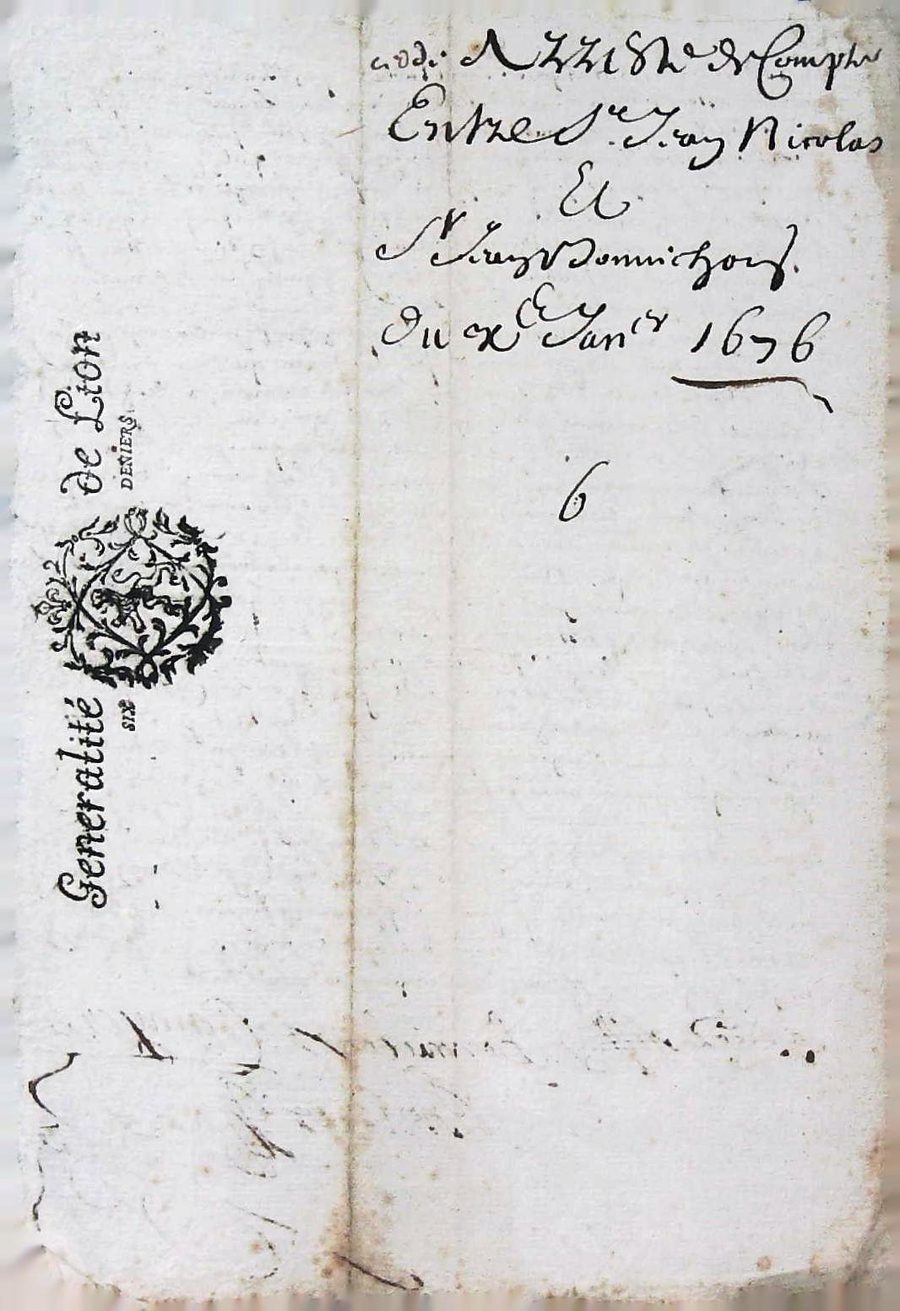 Arresté de Compte
Entre Sr. Jean Nicolas
Et
Sr Jean
Du xe Janer 1676
6
Generalité de Lion
SIX DENIERS